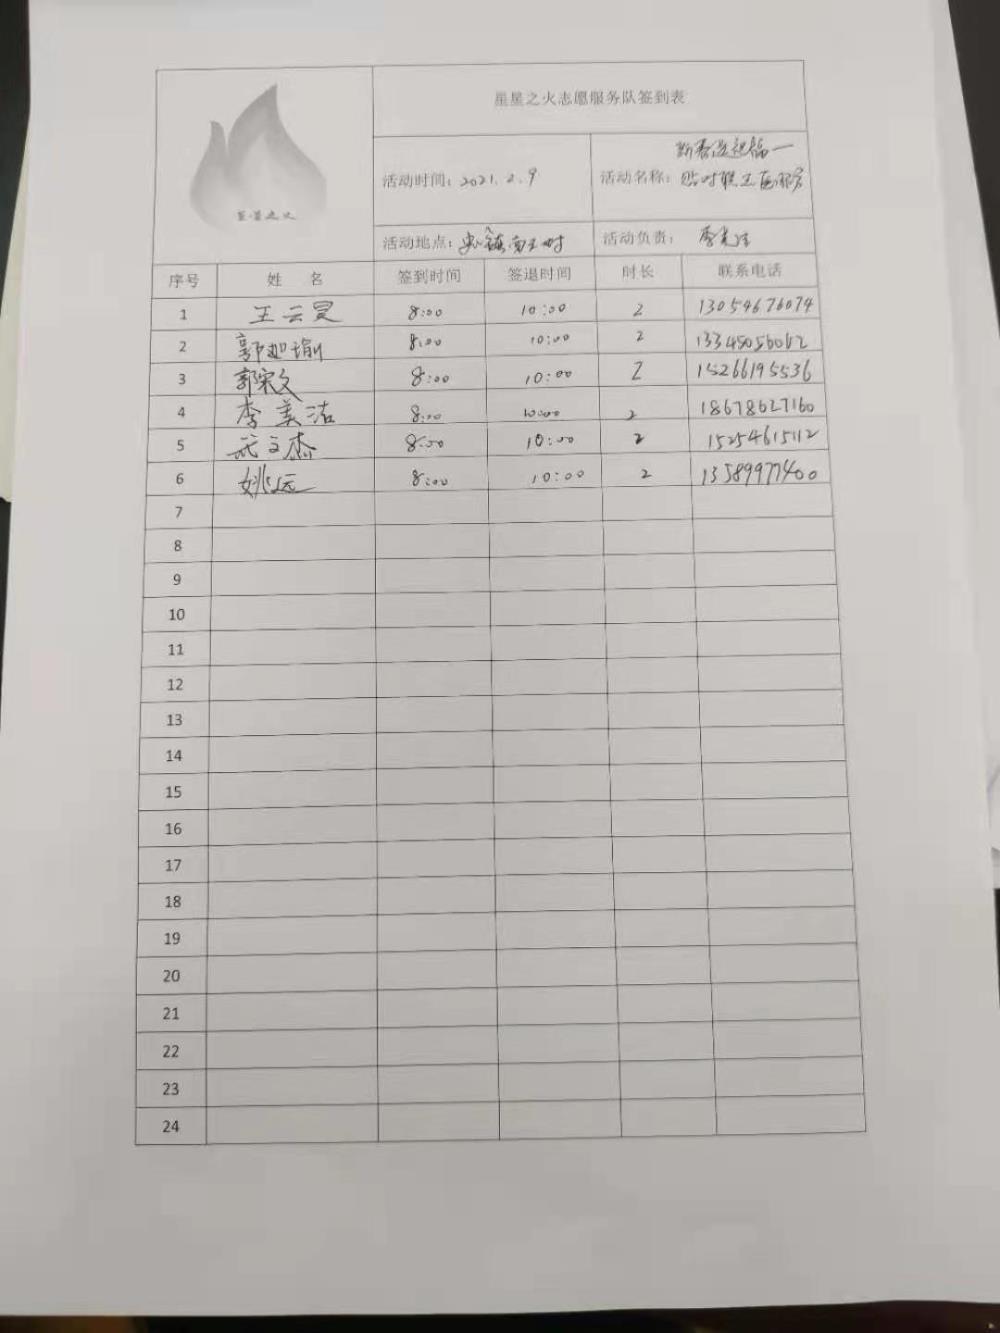 星星之火志愿服务队签到表
星星之火
新春送祝福一
活动时间：2021.2.9 活动名称：贴对联志愿服务
活动地点： 活动负责：
序号 姓 名 签到时间 签退时间 时长 联系电话
1 王云昊 8:00 10:00 2 13054676074
2 郭 8:00 10:00 2 13345056062
3 郭宗文 8:00 10:00 2 15266195536
4 李美洁 8:00 10:00 2 18678627160
5 文杰 8:00 10:00 2 15254615112
6 姚远 8:00 10:00 2 13589977400
7
8
9
10
11
12
13
14
15
16
17
18
19
20
21
22
23
24